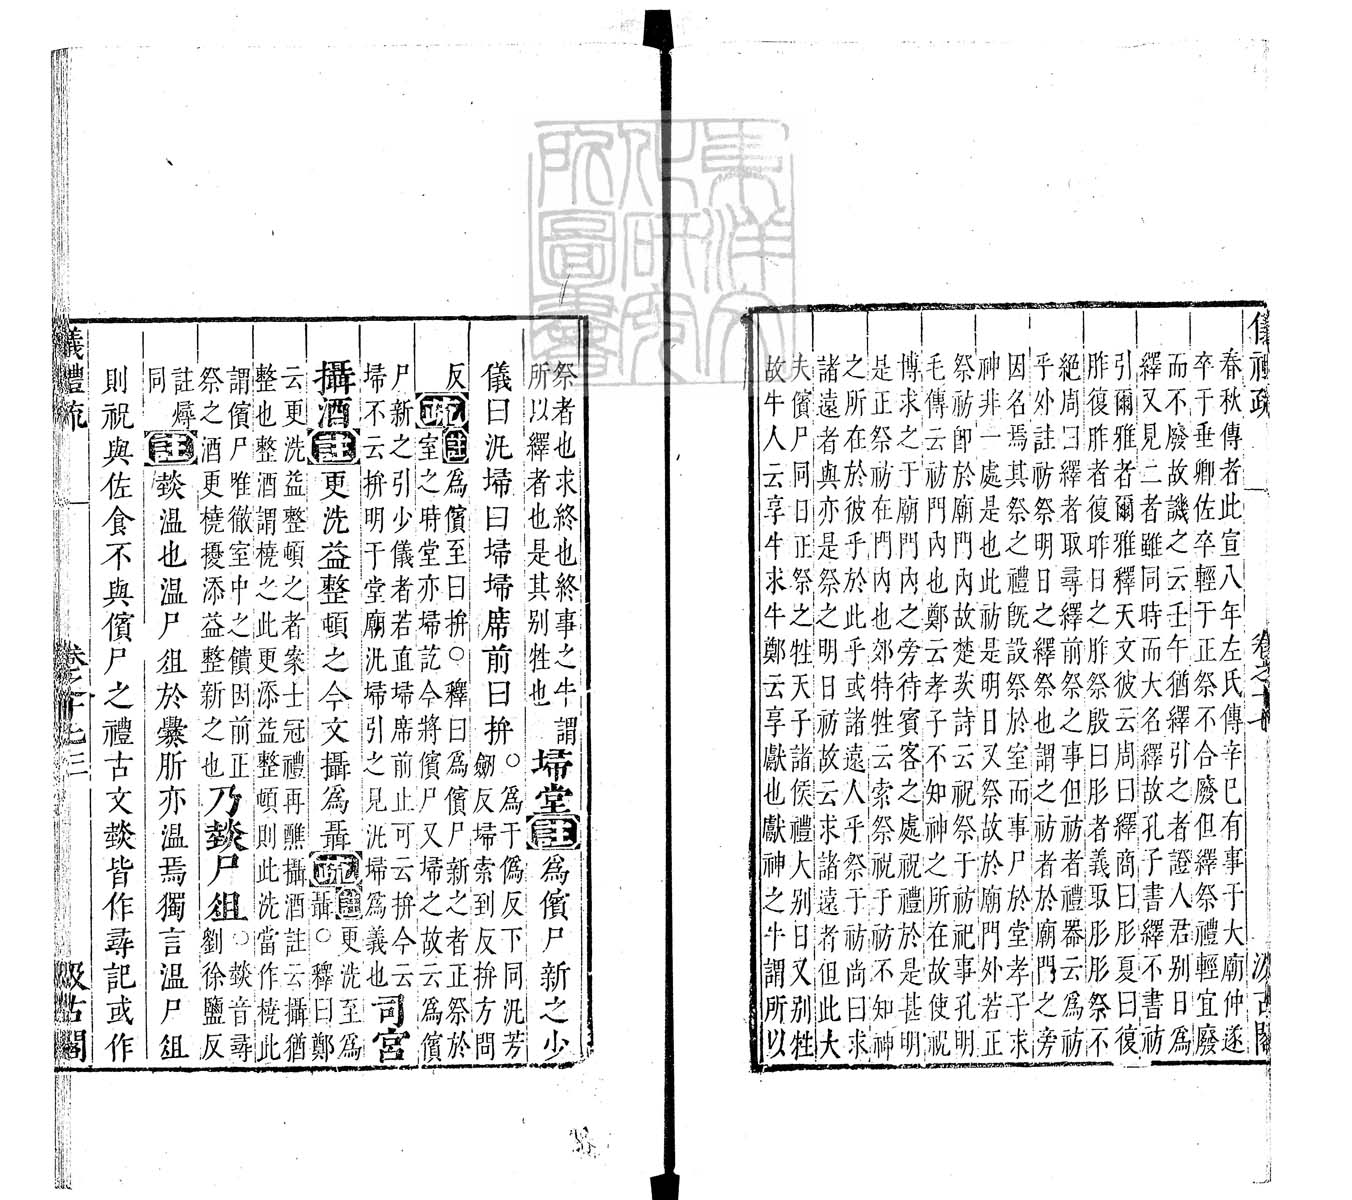 儀禮疏 卷之十七 汲古閣
春秋傳者此宣八年左氏傳辛巳有事于大廟仲遂
卒于垂卿佐卒輕于正祭不合廢但繹祭禮輕宜廢
而不廢故譏之云壬午猶繹引之者證人君别日爲
繹又見二者雖同時而大名繹故孔子書繹不書祊
引爾雅者爾雅釋天文彼云周曰繹商曰肜夏曰復
胙復胙者復昨日之胙祭殷曰肜者義取肜肜祭不
絕周曰繹者取尋繹前祭之事但祊者禮器云爲祊
乎外註祊祭明日之繹祭也謂之祊者於廟門之旁
因名焉其祭之禮旣設祭於室而事尸於堂孝子求
神非一處是也此祊是明日又祭故於廟門外若正
祭祊卽於廟門內故楚茨詩云祝祭于祊祀事孔明
毛傳云祊門內也鄭云孝子不知神之所在故使祝
博求之于廟門內之旁待賓客之處祝禮於是甚明
是正祭祊在門內也郊特牲云索祭祝于祊不知神
之所在於彼乎於此乎或諸遠人乎祭于祊尚曰求
諸遠者與亦是祭之明日祊故云求諸遠者但此大
夫儐尸同日正祭之牲天子諸侯禮大别日又别牲
故牛人云享牛求牛鄭云享獻也獻神之牛謂所以
祭者也求終也終事之牛謂
所以繹者也是其别牲也
埽堂 註 爲儐尸新之少
儀曰汎埽曰埽埽席前曰拚
○爲于僞反下同汎芳
劒反埽索到反拚方問
反
疏 註爲儐至曰拚○釋曰爲儐尸新之者正祭於
室之時堂亦埽訖今將儐尸又埽之故云爲儐
尸新之引少儀者若直埽席前止可云拚今云
埽不云拚明于堂廟汎埽引之見汎埽爲義也
司宮
攝酒 註 更洗益整頓之今文攝爲聶
疏 註更洗至爲
聶○釋曰鄭
云更洗益整頓之者案士冠禮再醮攝酒註云攝猶
整也整酒謂橈之此更添益整頓則此洗當作橈此
謂儐尸唯徹室中之饋因前正
祭之酒更橈擾添益整新之也
乃燅尸俎
○燅音尋
劉徐鹽反
註燖
同
註 燅温也温尸俎於爨所亦温焉獨言温尸俎
則祝與佐食不與儐尸之禮古文燅皆作尋記或作
儀禮疏 卷之十七 三 汲古閣
東洋文化研究所圖書